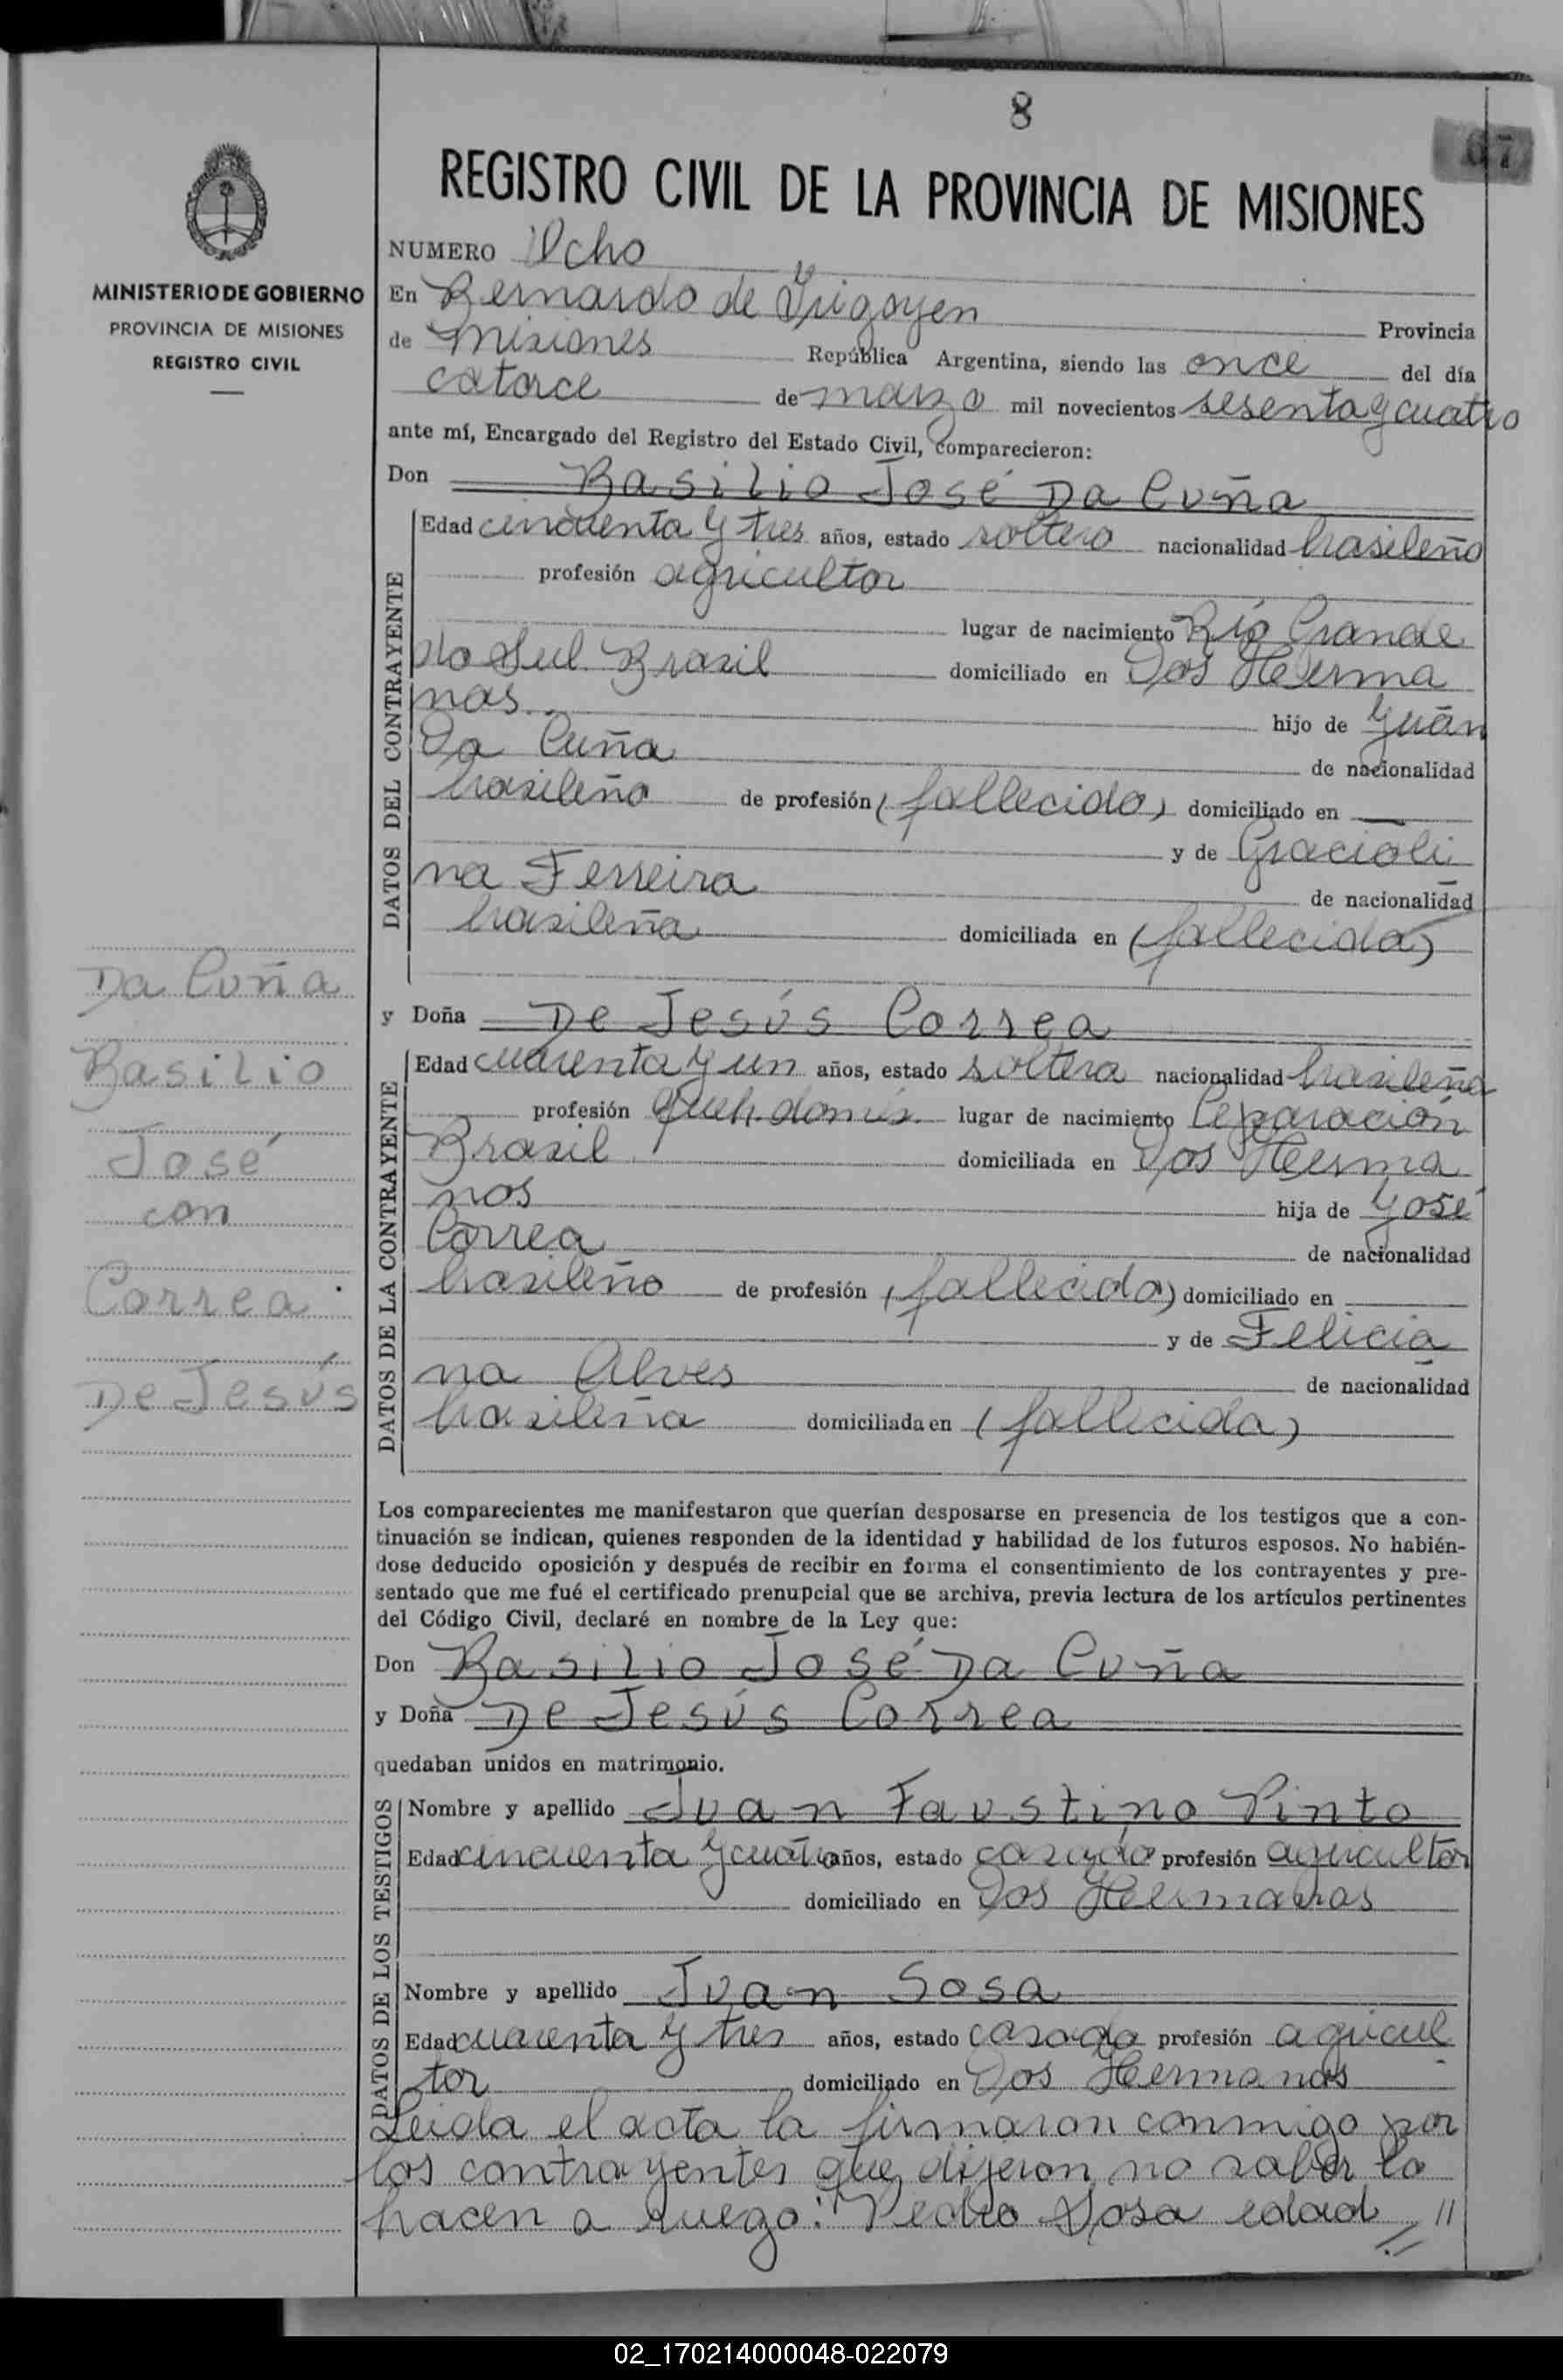 8
67
REGISTRO CIVIL DE LA PROVINCIA DE MISIONES
MINISTERIO DE GOBIERNO
PROVINCIA DE MISIONES
REGISTRO CIVIL
NUMERO Ocho
En Bernardo de Yrigoyen Provincia
de Misiones República Argentina, siendo las once del día
catorce de marzo mil novecientos sesenta y cuatro
ante mí, Encargado del Registro del Estado Civil, comparecieron:
Don Basilio José Da Cuña
DATOS DEL CONTRAYENTE
Edad cincuenta y tres años, estado soltero nacionalidad brasileño
profesión agricultor
lugar de nacimiento Río Grande
do Sul Brasil domiciliado en Dos Herma
nas hijo de Juan
Da Cuña de nacionalidad
brasileño de profesión (fallecido) domiciliado en
y de Gracioli
na Ferreira de nacionalidad
brasileña domiciliada en (fallecida)
y Doña De Jesús Correa
DATOS DE LA CONTRAYENTE
Edad cuarenta y un años, estado soltera nacionalidad brasileña
profesión lugar de nacimiento Separación
Brasil domiciliada en Dos Herma
nos hija de José
Correa de nacionalidad
brasileño de profesión (fallecido) domiciliado en
y de Felicia
na Alves de nacionalidad
brasileña domiciliada en (fallecida)
Da Cuña
Basilio
José
con
Correa
De Jesús
Los comparecientes me manifestaron que querían desposarse en presencia de los testigos que a con-
tinuación se indican, quienes responden de la identidad y habilidad de los futuros esposos. No habién-
dose deducido oposición y después de recibir en forma el consentimiento de los contrayentes y pre-
sentado que me fué el certificado prenupcial que se archiva, previa lectura de los artículos pertinentes
del Código Civil, declaré en nombre de la Ley que:
Don Basilio José Da Cuña
y Doña De Jesús Correa
quedaban unidos en matrimonio.
DATOS DE LOS TESTIGOS
Nombre y apellido Juan Faustino Pinto
Edad cincuenta y cuatro años, estado casado profesión agricultor
domiciliado en Dos Hermanas
Nombre y apellido Juan Sosa
Edad cuarenta y tres años, estado casado profesión agricul
tor domiciliado en Dos Hermanas
Leida el acta la firmaron conmigo por
los contrayentes que dijeron no saber lo
hacen a ruego: Pedro Sosa edad //
02_170214000048-022079